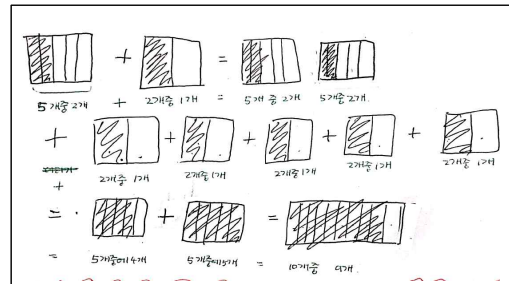 + =
5개중 2개 + 2개중 1개 = 5개 중 2개 5개중 2개.
+ + + + +
+ 2개중 1개 2개중 1개 2개중 1개 2개중 1개 2개중 1개
= + =
= 5개중에 4개 5개중에 5개 = 10개중 9개.